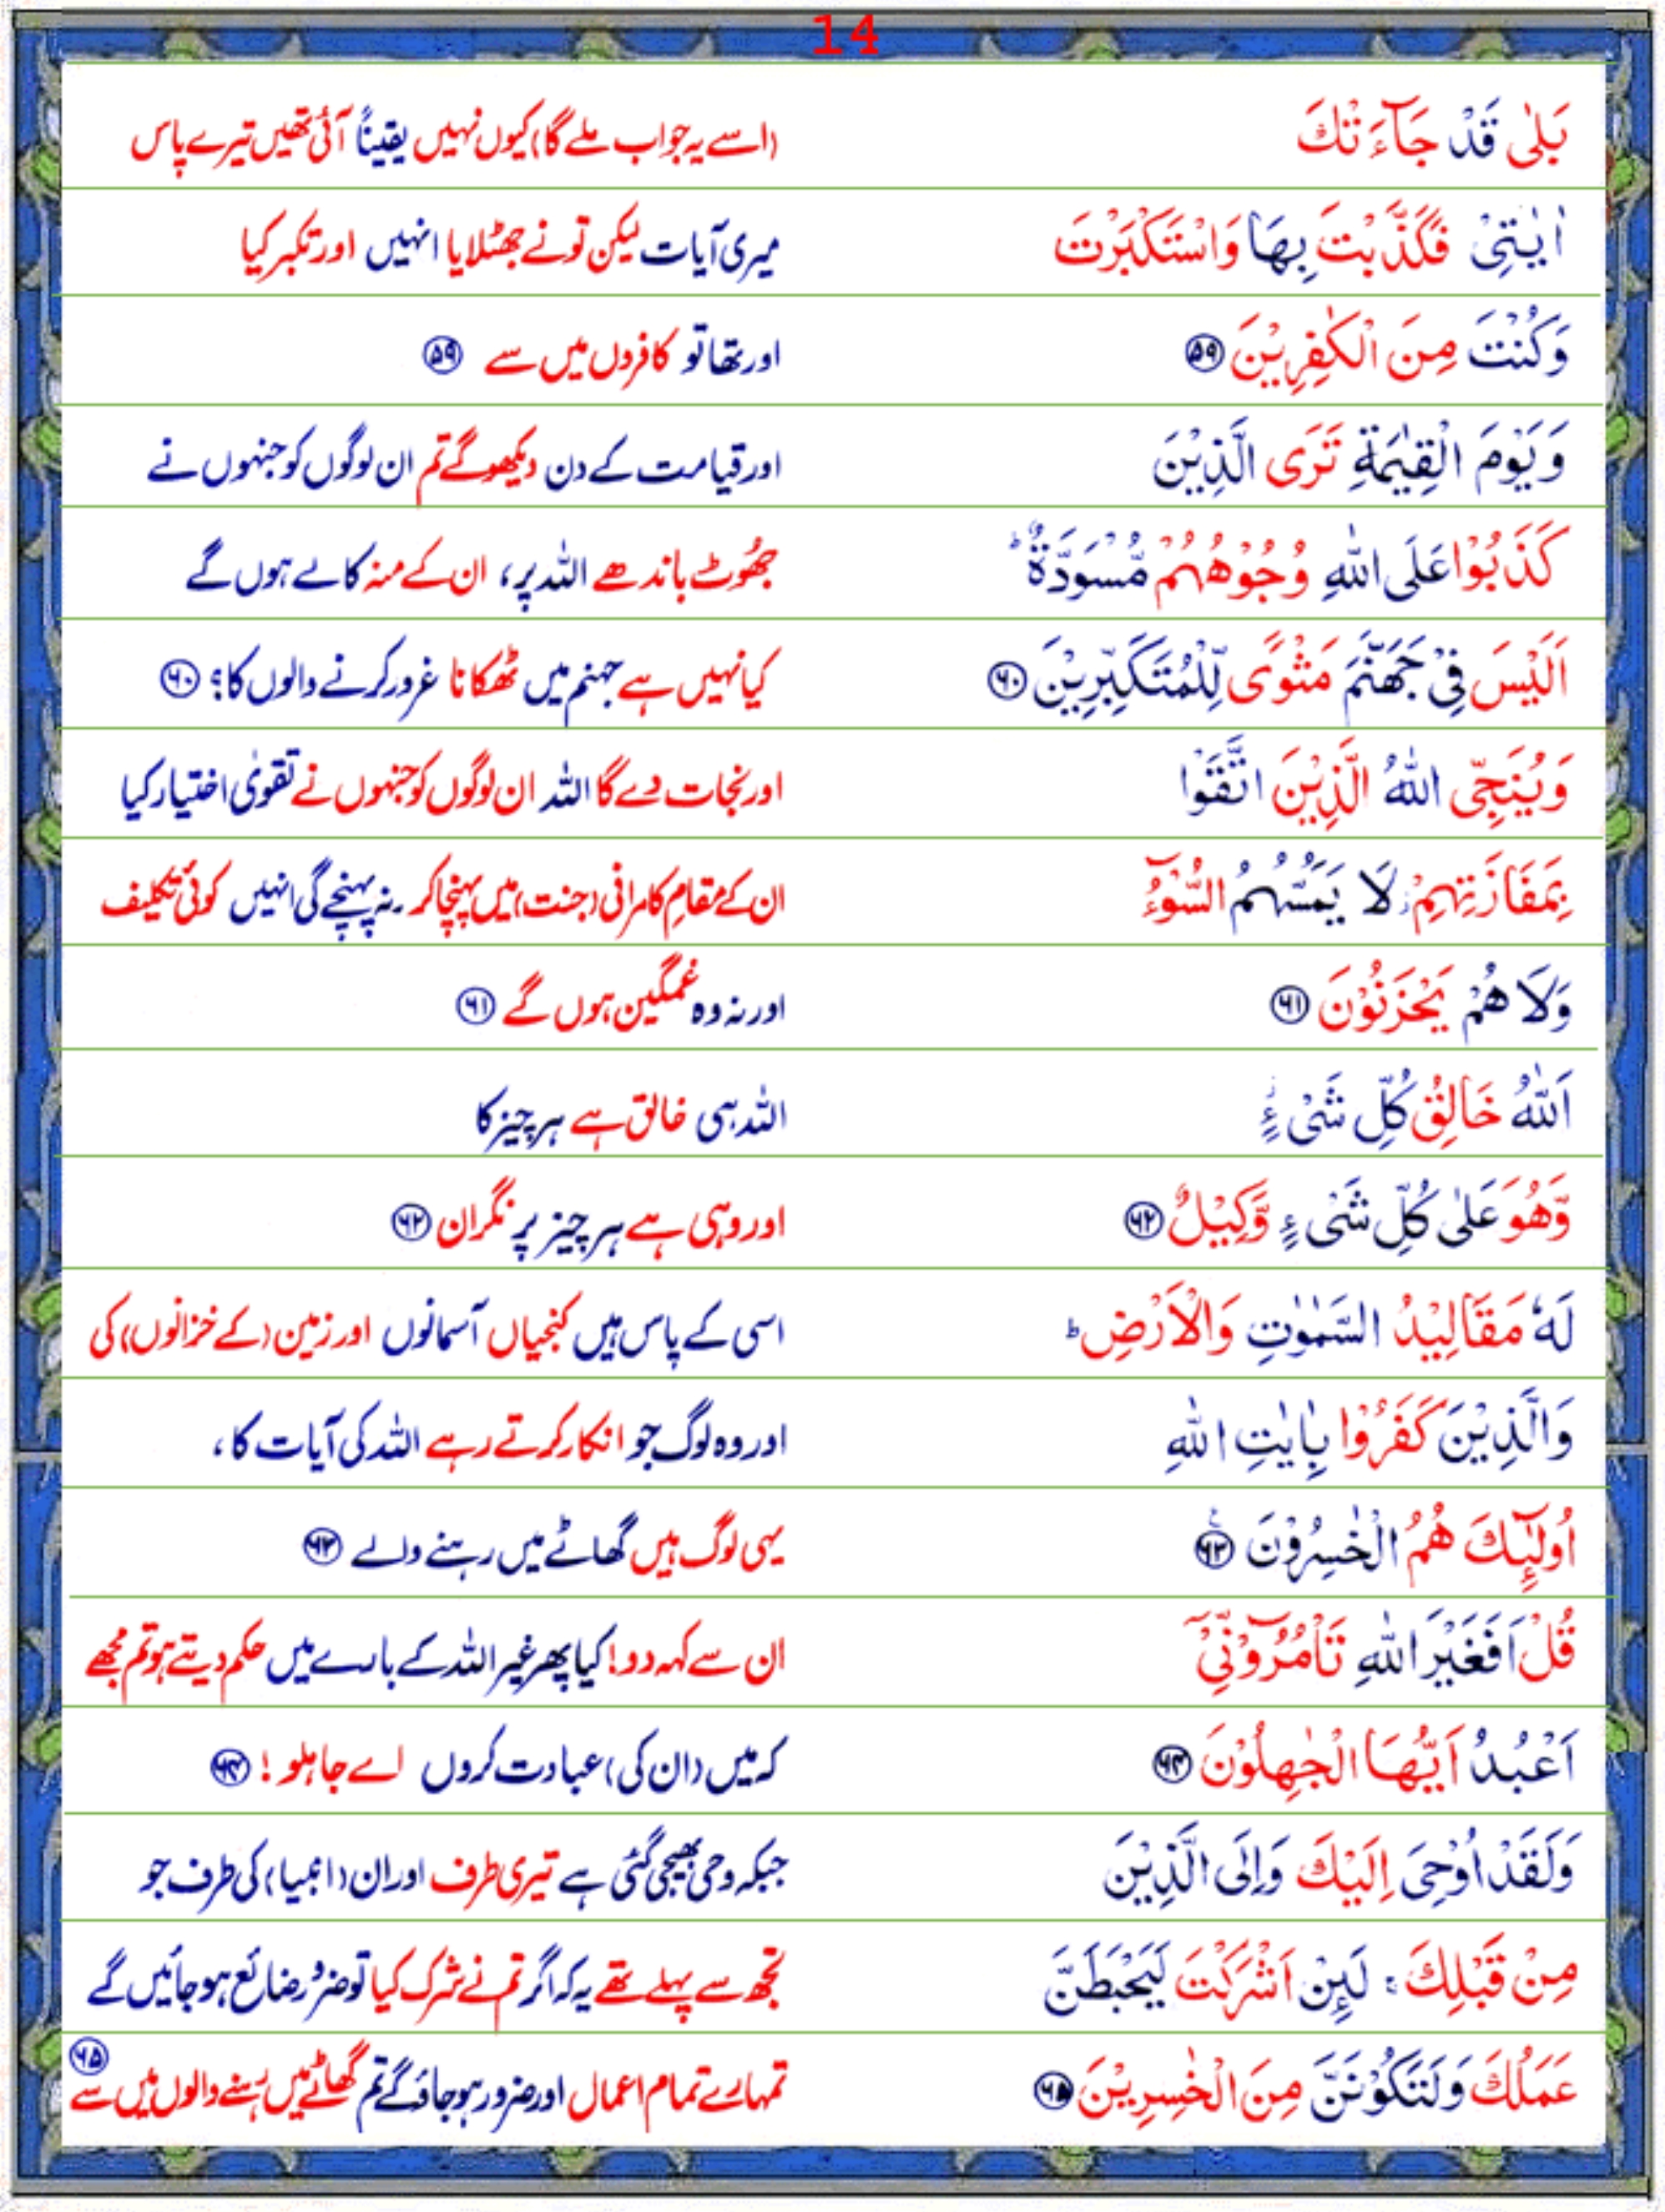 14
بَلٰى قَدْ جَآءَتْكَ (اسے یہ جواب ملے گا) کیوں نہیں یقیناً آئی تھیں تیرے پاس
اٰيٰتِىْ فَكَذَّبْتَ بِهَا وَاسْتَكْبَرْتَ میری آیات لیکن تونے جھٹلایا انہیں اور تکبر کیا
وَكُنْتَ مِنَ الْكٰفِرِيْنَ ۵۹ اور تھا تو کافروں میں سے ۵۹
وَيَوْمَ الْقِيٰمَةِ تَرَى الَّذِيْنَ اور قیامت کے دن دیکھو گے تم ان لوگوں کو جنہوں نے
كَذَبُوْا عَلَى اللّٰهِ وُجُوْهُهُمْ مُّسْوَدَّةٌ ؕ جھوٹ باندھے اللہ پر، ان کے منہ کالے ہوں گے
اَلَيْسَ فِىْ جَهَنَّمَ مَثْوًى لِّلْمُتَكَبِّرِيْنَ ۶۰ کیا نہیں ہے جہنم میں ٹھکانا غرور کرنے والوں کا؟ ۶۰
وَيُنَجِّى اللّٰهُ الَّذِيْنَ اتَّقَوْا اور نجات دے گا اللہ ان لوگوں کو جنہوں نے تقویٰ اختیار کیا
بِمَفَازَتِهِمْ ز لَا يَمَسُّهُمُ السُّوْٓءُ ان کے مقامِ کامرانی (جنت) میں پہنچا کر۔ نہ پہنچے گی انہیں کوئی تکلیف
وَلَا هُمْ يَحْزَنُوْنَ ۶۱ اور نہ وہ غمگین ہوں گے ۶۱
اَللّٰهُ خَالِقُ كُلِّ شَىْءٍ ز اللہ ہی خالق ہے ہر چیز کا
وَّهُوَ عَلٰى كُلِّ شَىْءٍ وَّكِيْلٌ ۶۲ اور وہی ہے ہر چیز پر نگران ۶۲
لَهٗ مَقَالِيْدُ السَّمٰوٰتِ وَالْاَرْضِ ؕ اسی کے پاس ہیں کنجیاں آسمانوں اور زمین (کے خزانوں) کی
وَالَّذِيْنَ كَفَرُوْا بِاٰيٰتِ اللّٰهِ اور وہ لوگ جو انکار کرتے رہے اللہ کی آیات کا،
اُولٰٓئِكَ هُمُ الْخٰسِرُوْنَ ۶۳ یہی لوگ ہیں گھاٹے میں رہنے والے ۶۳
قُلْ اَفَغَيْرَ اللّٰهِ تَاْمُرُوْٓنِّىْٓ ان سے کہہ دو! کیا پھر غیر اللہ کے بارے میں حکم دیتے ہو تم مجھے
اَعْبُدُ اَيُّهَا الْجٰهِلُوْنَ ۶۴ کہ میں (ان کی) عبادت کروں اے جاہلو! ۶۴
وَلَقَدْ اُوْحِىَ اِلَيْكَ وَاِلَى الَّذِيْنَ جبکہ وحی بھیجی گئی ہے تیری طرف اور ان (انبیا) کی طرف جو
مِنْ قَبْلِكَ ۚ لَئِنْ اَشْرَكْتَ لَيَحْبَطَنَّ تجھ سے پہلے تھے یہ کہ اگر تم نے شرک کیا تو ضرور ضائع ہو جائیں گے
عَمَلُكَ وَلَتَكُوْنَنَّ مِنَ الْخٰسِرِيْنَ ۶۵ تمہارے تمام اعمال اور ضرور ہو جاؤ گے تم گھاٹے میں رہنے والوں میں سے ۶۵